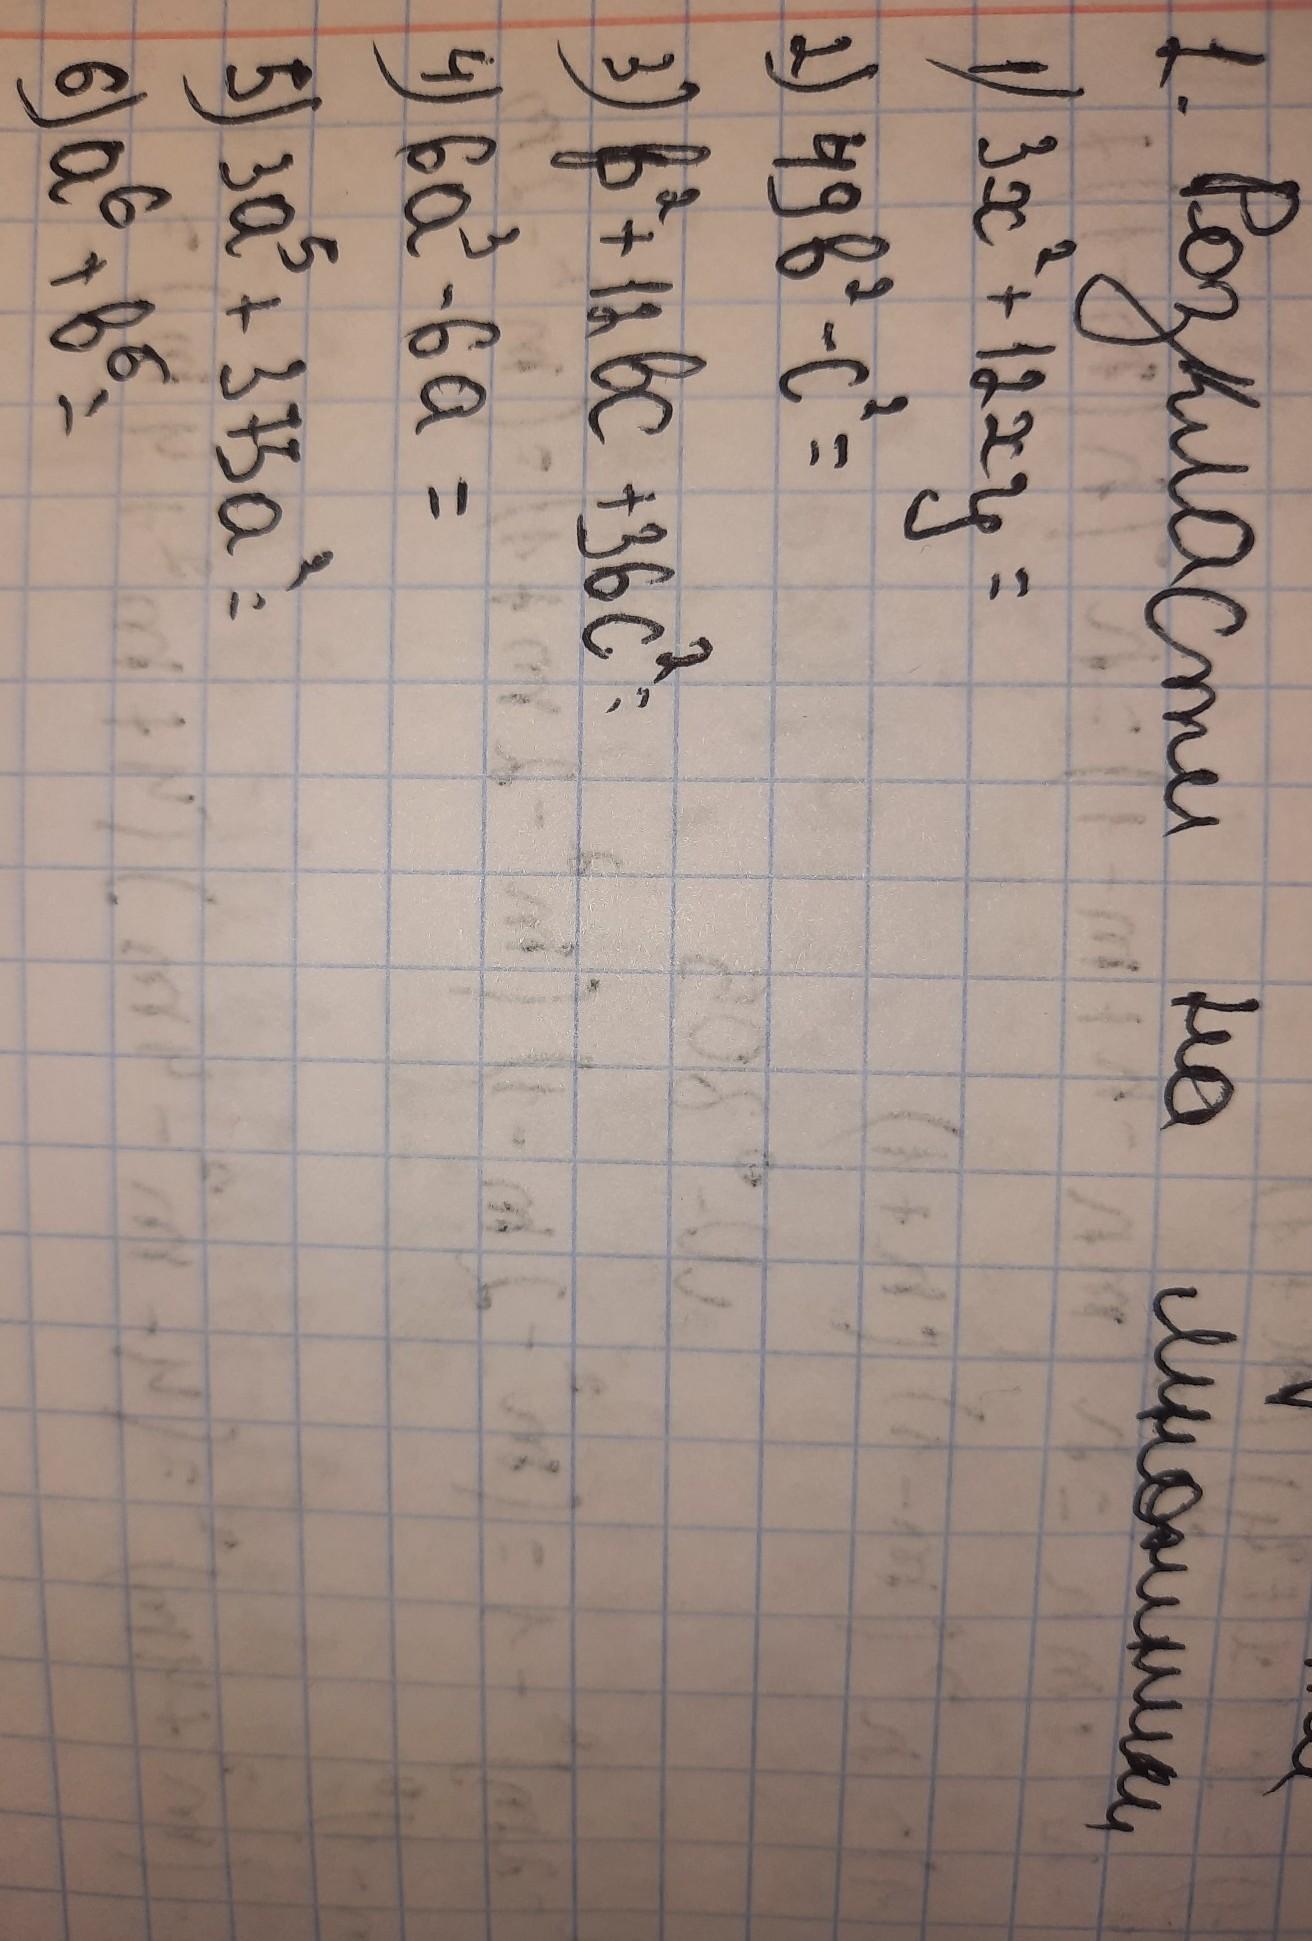 1. Розкласти на множники
1) 3x² + 12xy =
2) 49b² - c² =
3) b² + 12bc + 36c² =
4) 6a³ - 6a =
5) 3a⁵ + 375a² =
6) a⁶ + b⁶ =